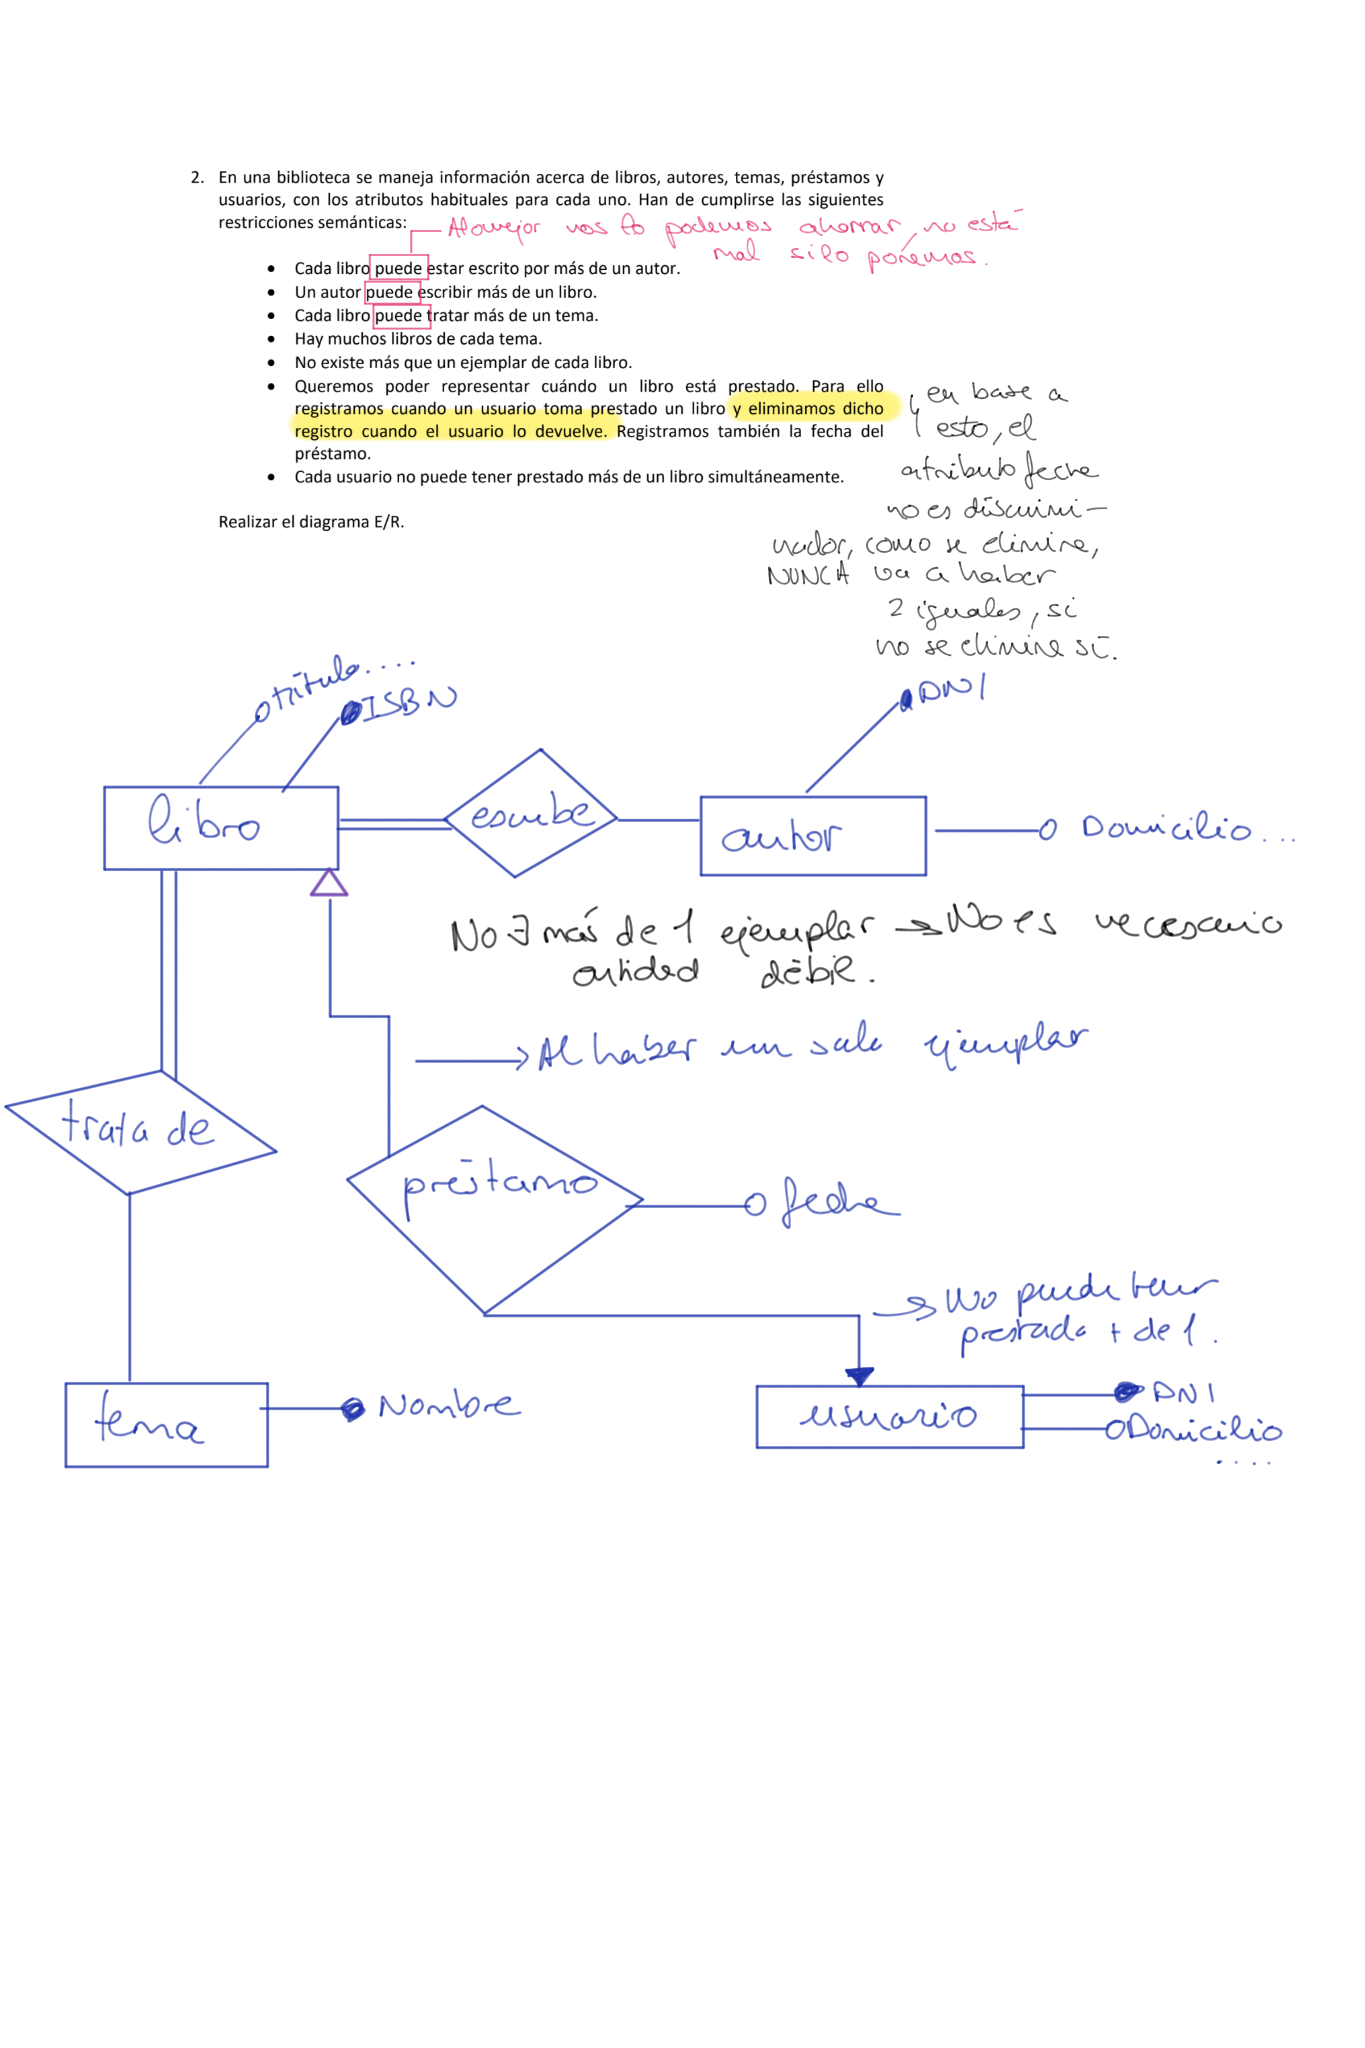 2. En una biblioteca se maneja información acerca de libros, autores, temas, préstamos y
usuarios, con los atributos habituales para cada uno. Han de cumplirse las siguientes
restricciones semánticas:
Alomejor nos lo podemos ahorrar, no está
mal si lo ponemos.
• Cada libro puede estar escrito por más de un autor.
• Un autor puede escribir más de un libro.
• Cada libro puede tratar más de un tema.
• Hay muchos libros de cada tema.
• No existe más que un ejemplar de cada libro.
• Queremos poder representar cuándo un libro está prestado. Para ello
registramos cuando un usuario toma prestado un libro y eliminamos dicho
registro cuando el usuario lo devuelve. Registramos también la fecha del
préstamo.
• Cada usuario no puede tener prestado más de un libro simultáneamente.
en base a
esto, el
atributo fecha
no es discrimi-
nador, como se elimina,
NUNCA va a haber
2 iguales, si
no se elimina sí.
Realizar el diagrama E/R.
título....
ISBN
DNI
libro
escribe
autor
Domicilio...
No ∃ más de 1 ejemplar → No es necesario
entidad débil.
→ Al haber un solo ejemplar
trata de
préstamo
fecha
→ No puede tener
prestado + de 1.
tema
Nombre
usuario
DNI
Domicilio
....